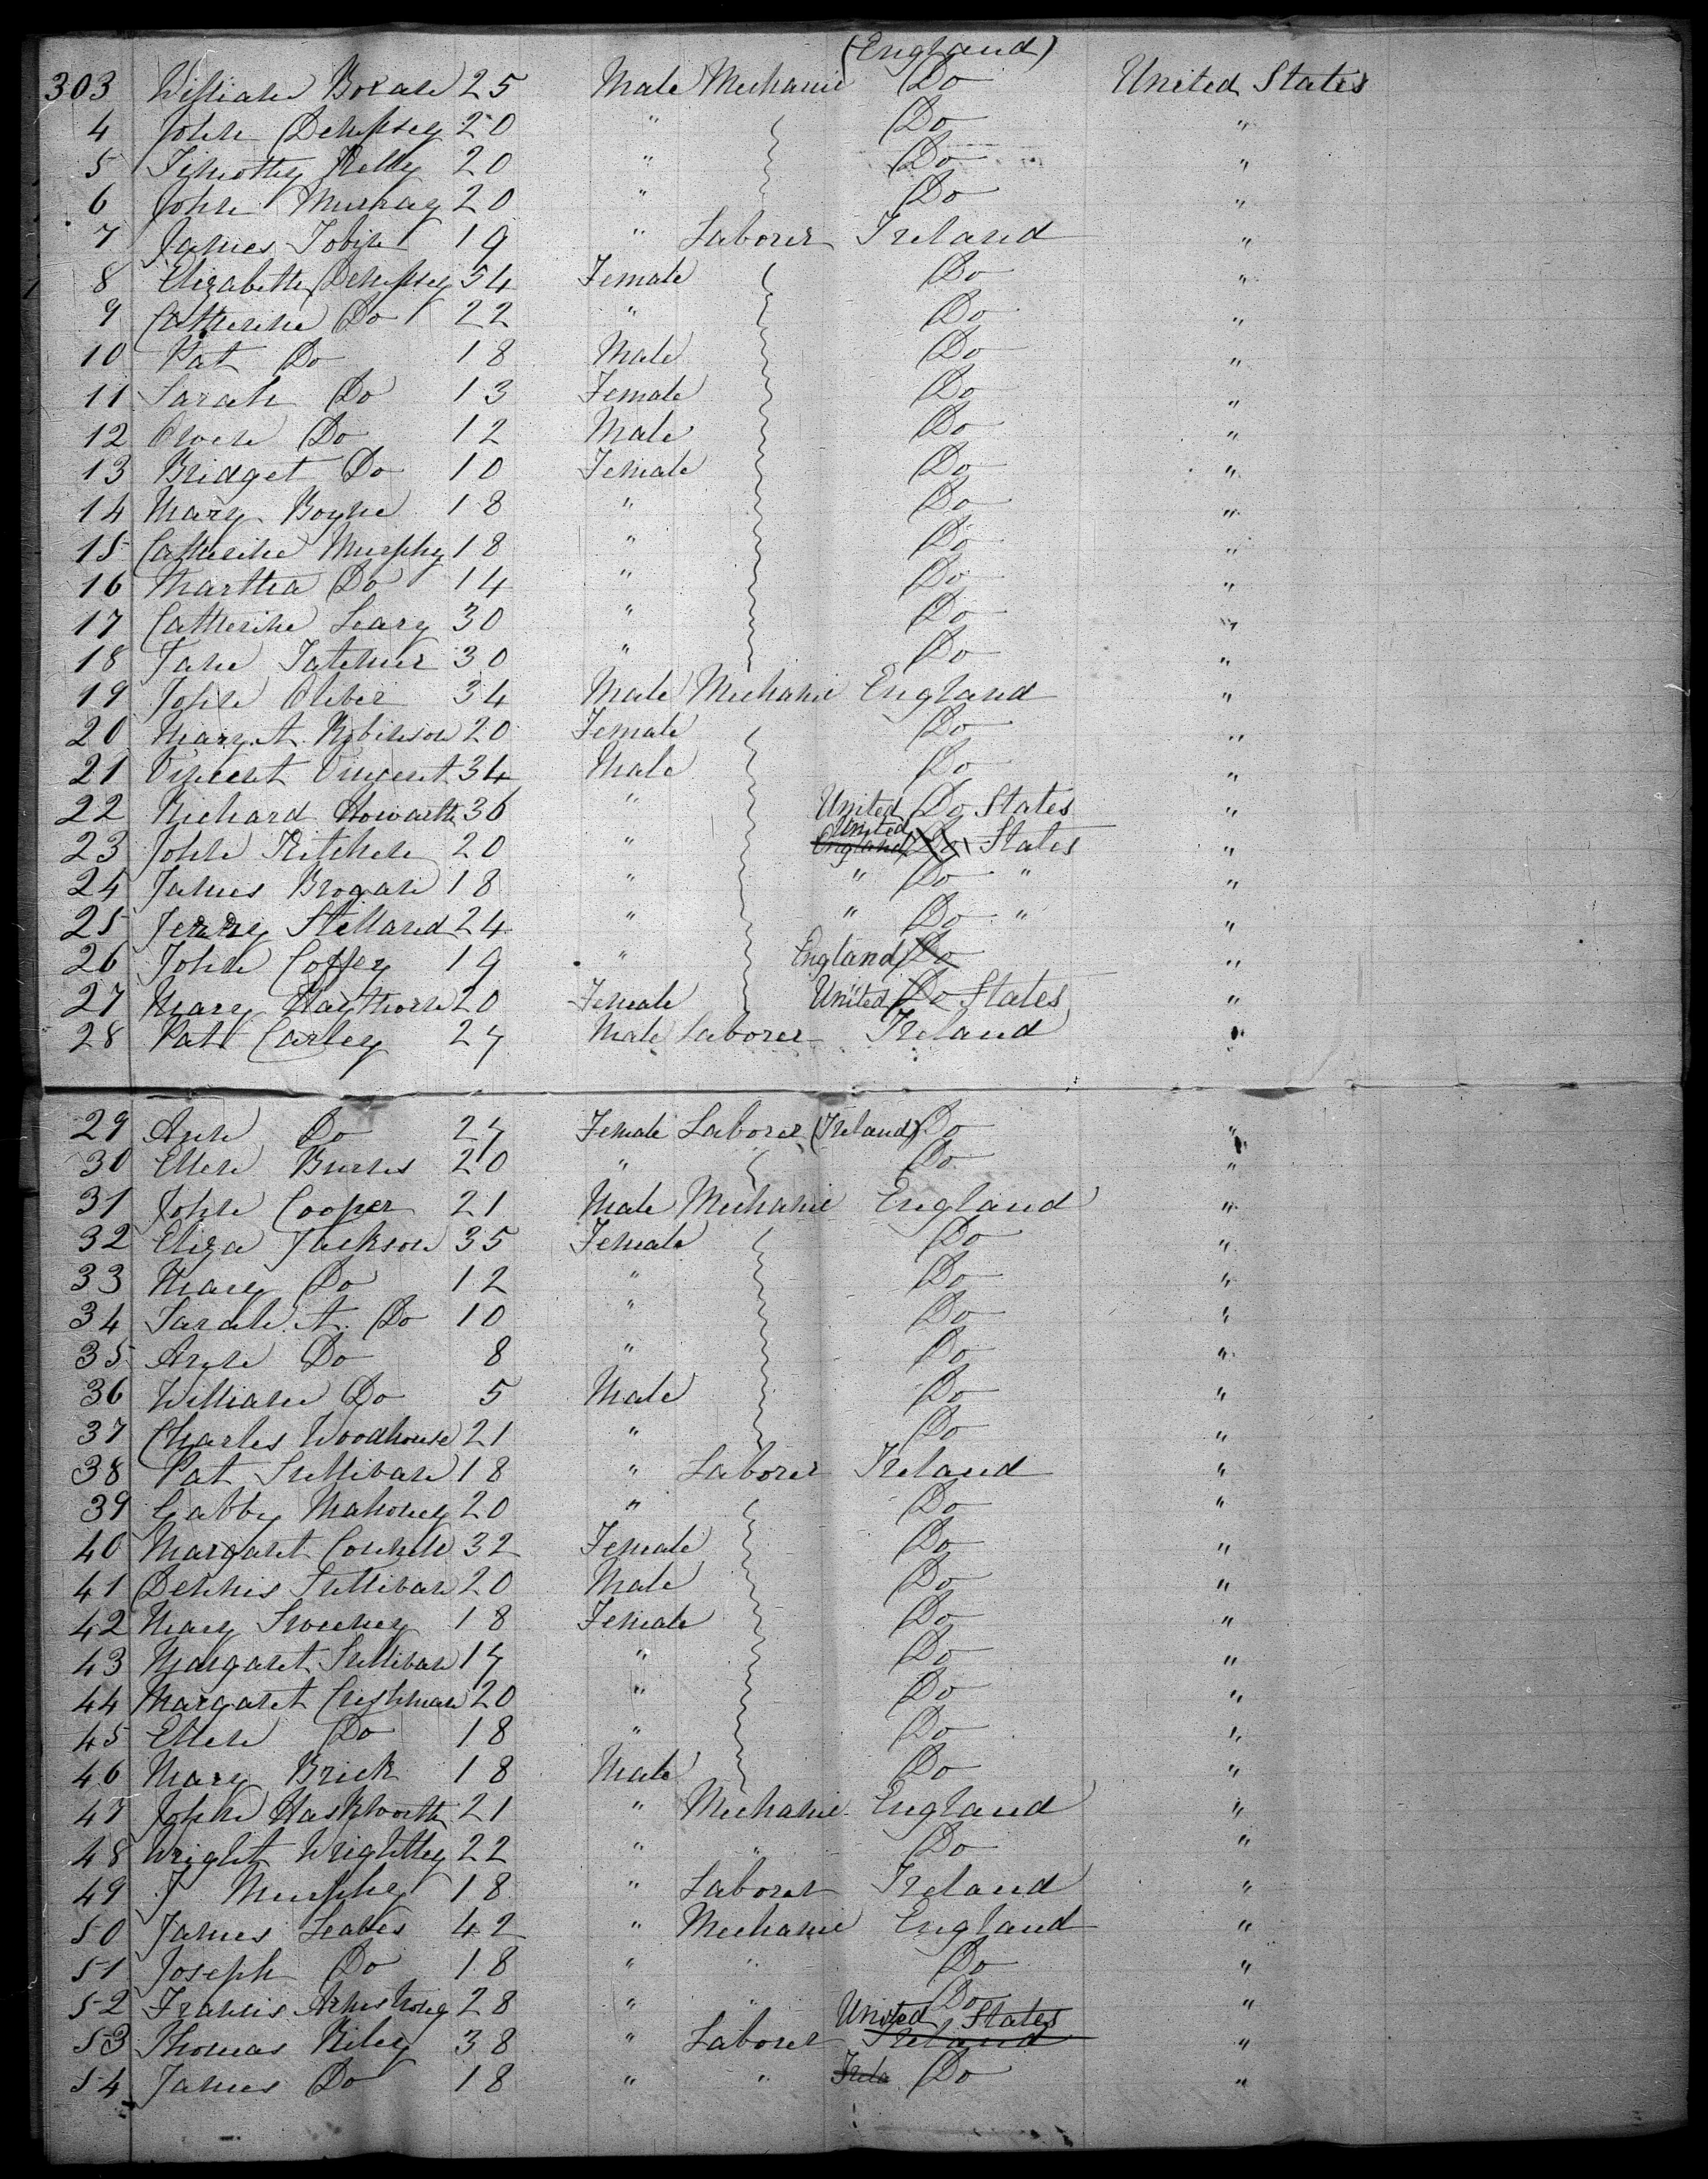 (England)
303 William Boran 25 Male Mechanic Do United States
4 John Dempsey 20 " Do "
5 Timothy Kelly 20 " Do "
6 John Murray 20 " Do "
7 James Tobin 19 " Laborer Ireland "
8 Elizabeth Dempsey 54 Female Do "
9 Catherine Do 22 " Do "
10 Pat Do 18 Male Do "
11 Sarah Do 13 Female Do "
12 Owen Do 12 Male Do "
13 Bridget Do 10 Female Do "
14 Mary Boyne 18 " Do "
15 Catherine Murphy 18 " Do "
16 Martha Do 14 " Do "
17 Catherine Leary 30 " Do "
18 Jane 30 " Do "
19 John Oliver 34 Male Mechanic England "
20 Mary A. Robinson 20 Female Do "
21 Vincent Vincent 34 Male Do "
22 Richard Howarth 36 " United Do States "
23 John Kitchen 20 " England United Do States "
24 James Brogan 18 " " Do " "
25 Jerry Stelland 24 " " Do " "
26 John Coffey 19 " England Do "
27 Mary Haythorn 20 Female United Do States "
28 Patt Carley 27 Male Laborer Ireland "
29 Ann Do 27 Female Laborer (Ireland) Do "
30 Ellen Burns 20 " Do "
31 John Cooper 21 Male Mechanic England "
32 Eliza Jackson 35 Female Do "
33 Mary Do 12 " Do "
34 Sarah A. Do 10 " Do "
35 Ann Do 8 " Do "
36 William Do 5 Male Do "
37 Charles Woodhouse 21 " Do "
38 Pat Sullivan 18 " Laborer Ireland "
39 Gabby Mahoney 20 " Do "
40 Margaret 32 Female Do "
41 Dennis Sullivan 20 Male Do "
42 Mary Sweeney 18 Female Do "
43 Margaret Sullivan 17 " Do "
44 Margaret 20 " Do "
45 Ellen Do 18 " Do "
46 Mary Brick 18 Male Do "
47 John Haskworth 21 " Mechanic England "
48 Wright Wrightley 22 " " Do "
49 J Murphy 18 " Laborer Ireland "
50 James Leates 42 " Mechanic England "
51 Joseph Do 18 " " Do "
52 Francis Armstrong 28 " " Do "
53 Thomas Riley 38 " Laborer United States Ireland "
54 James Do 18 " " Irela Do "